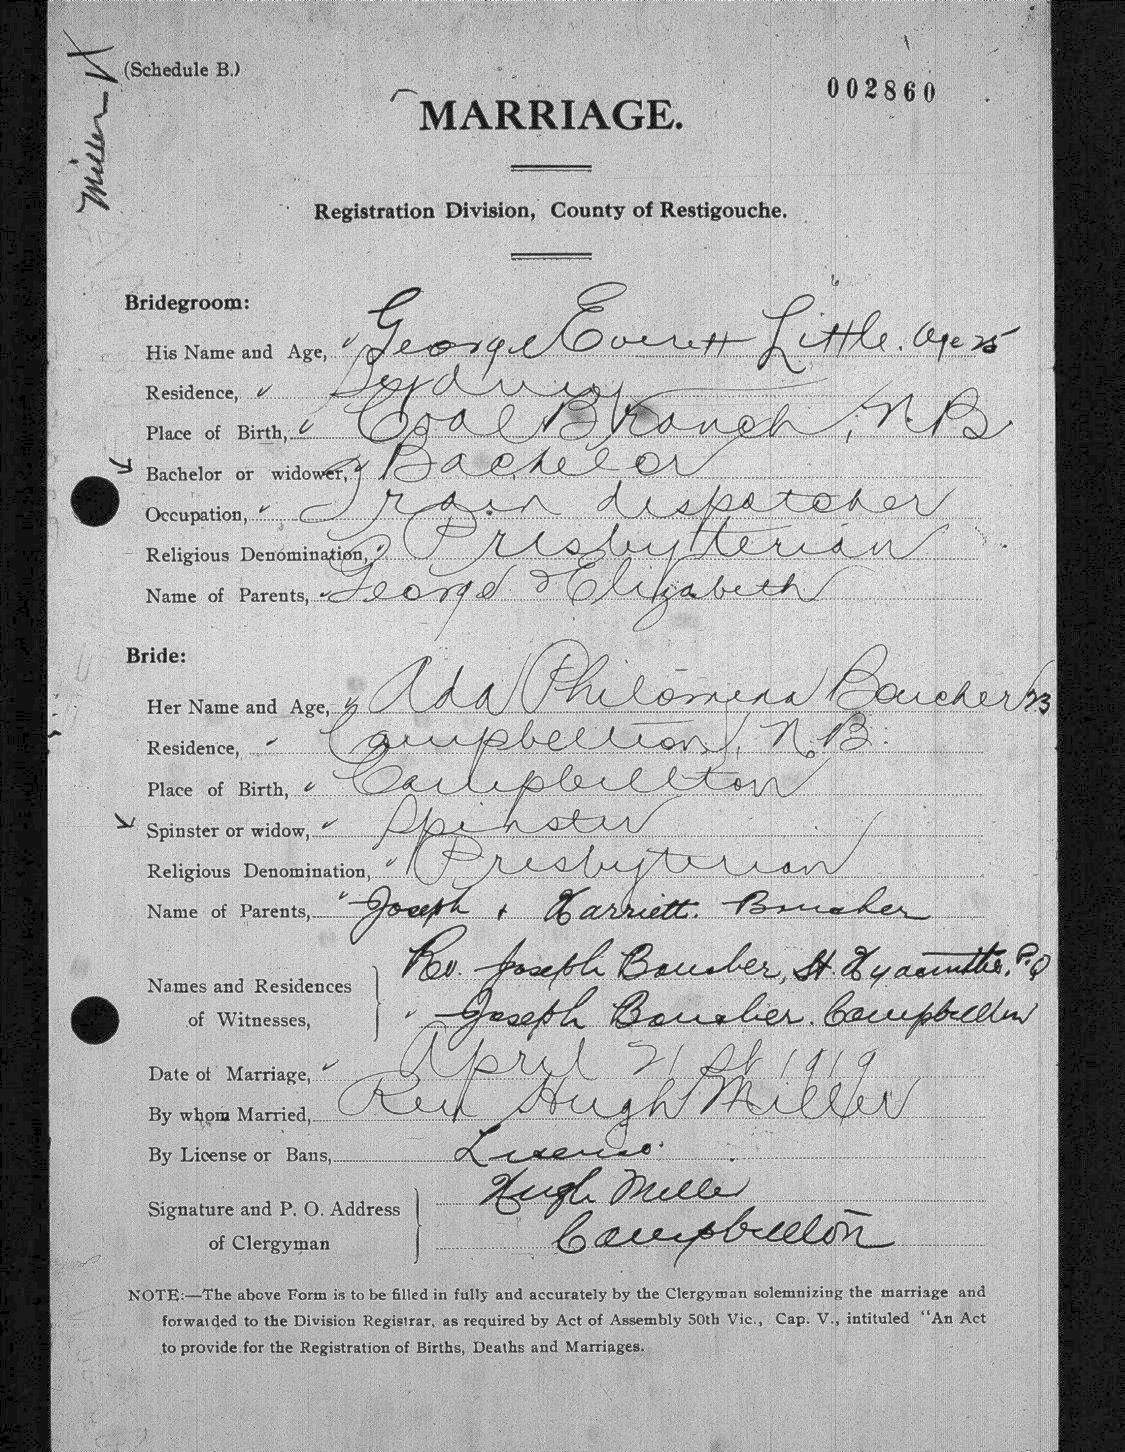 Miller
(Schedule B.)
002860
MARRIAGE.
Registration Division, County of Restigouche.
Bridegroom:
His Name and Age, George Everett Little. Age 25
Residence, Sydney
Place of Birth, Coal Branch, N.B.
Bachelor or widower, Bachelor
Occupation, Train dispatcher
Religious Denomination, Presbyterian
Name of Parents, George & Elizabeth
Bride:
Her Name and Age, Ada Philomena Boucher 23
Residence, Campbellton, N.B.
Place of Birth, Campbellton
Spinster or widow, Spinster
Religious Denomination, Presbyterian
Name of Parents, Joseph + Harriett. Boucher
Rev. Joseph Boucher, St. Hyacinthe, P.Q
Names and Residences
of Witnesses, Joseph Boucher. Campbellton
Date of Marriage, April 21 st 1919
By whom Married, Rev Hugh Miller
By License or Bans, License
Signature and P. O. Address Hugh Miller
of Clergyman Campbellton
NOTE:—The above Form is to be filled in fully and accurately by the Clergyman solemnizing the marriage and
forwarded to the Division Registrar, as required by Act of Assembly 50th Vic., Cap. V., intituled "An Act
to provide for the Registration of Births, Deaths and Marriages.